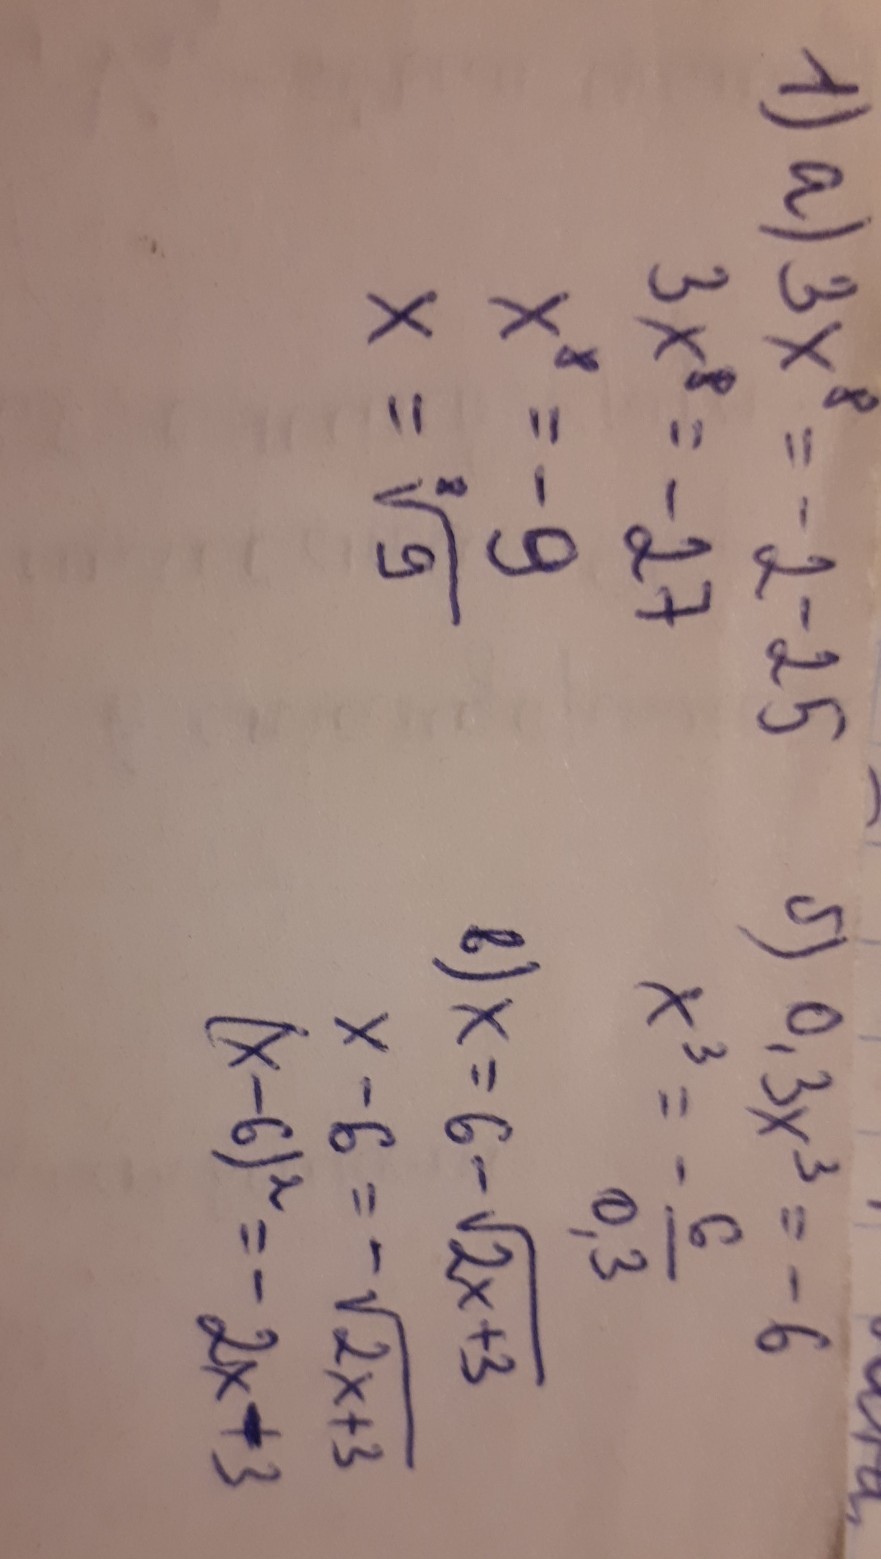 1) а) 3x⁸ = -2-25
3x⁸ = -27
x⁸ = -9
x = ⁸√9
б) 0,3x³ = -6
x³ = - 6/0,3
в) x = 6 - √2x+3
x - 6 = - √2x+3
(x-6)² = - 2x+3